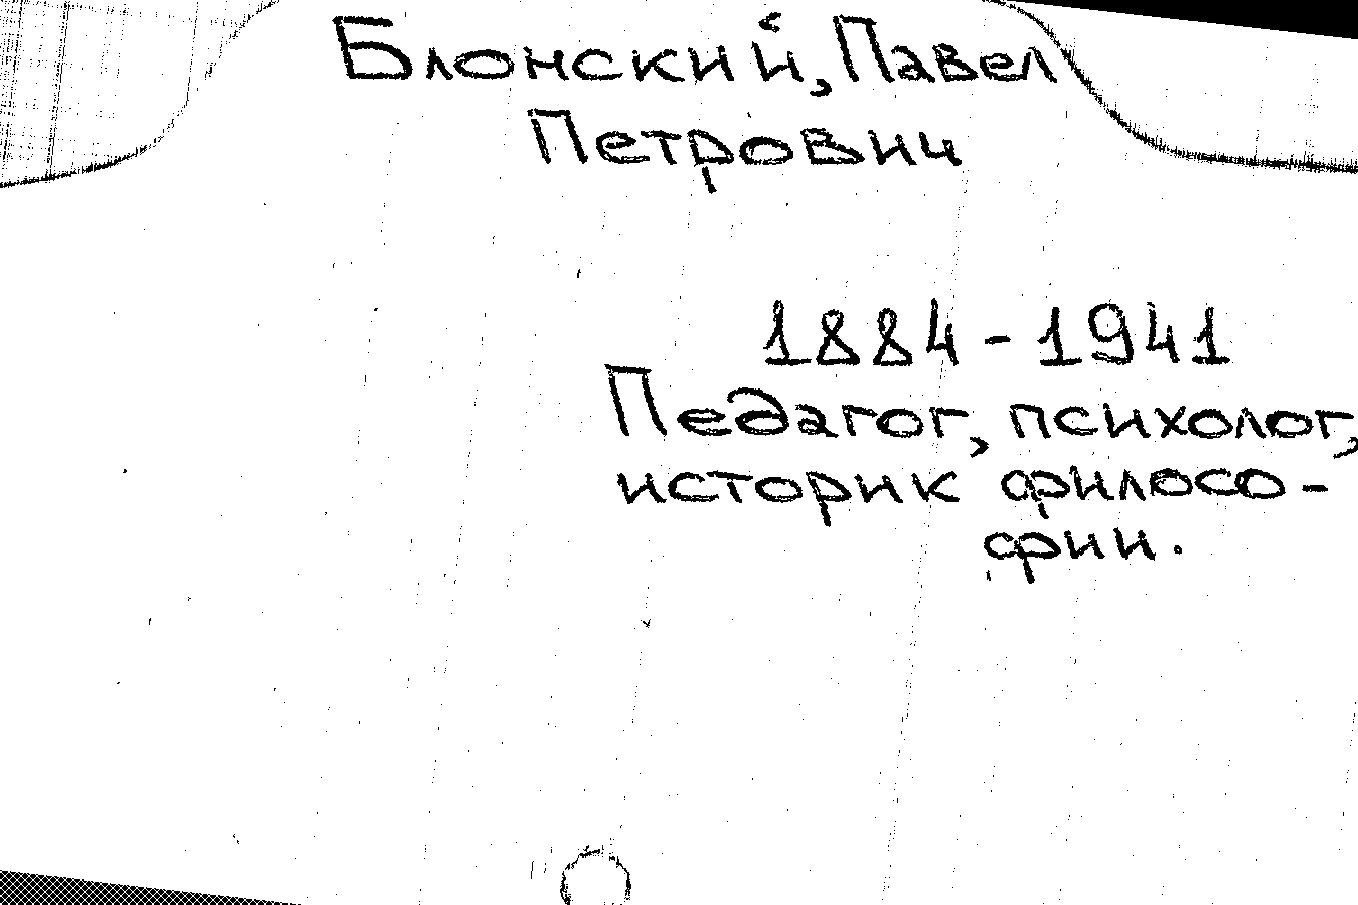 Блонский, Павел
Петрович
1884-1941
Педагог, психолог,
историк филосо-
фии.